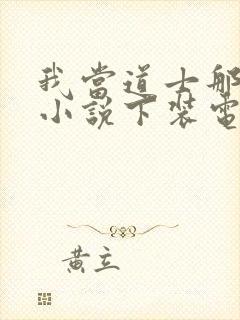 我當道士那
小說下裝電
黃立